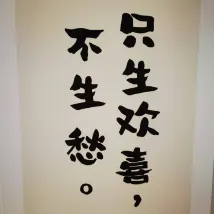 只生欢喜，
不生愁。